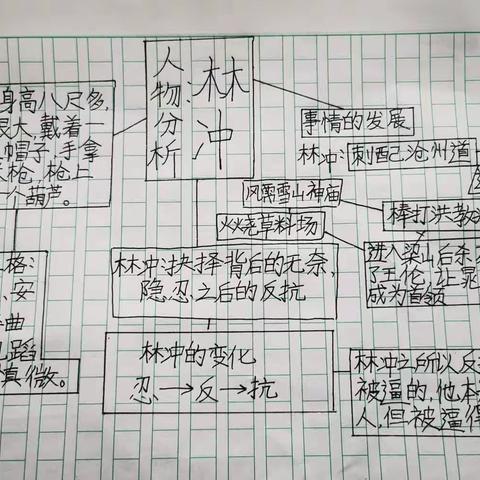 人物分析:
林冲
身高八尺多,
很大,戴着一
帽子,手拿
长枪,枪上
一个葫芦。
事情的发展
林冲:刺配沧州道
风雪山神庙
棒打洪教
火烧草料场
进入梁山后杀
了王伦,让晁
成为首领
林冲:抉择背后的无奈,
隐忍之后的反抗
格:
、安
曲
蹈
慎微。
林冲的变化
忍→反→抗
林冲之所以反
被逼的,他本
人,但被逼得